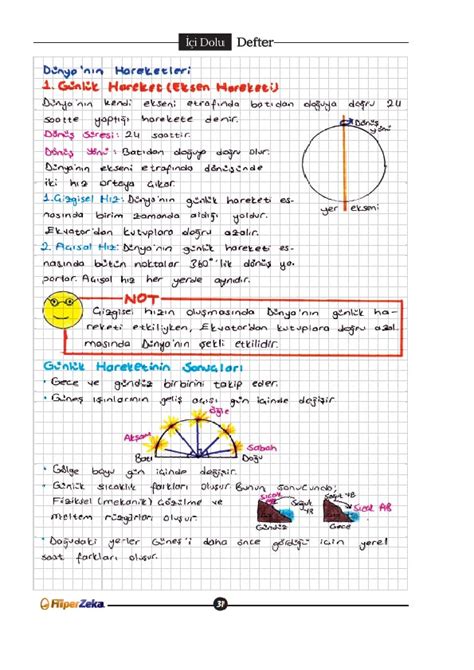 İçi Dolu Defter
Dünya'nın Hareketleri
1. Günlük Hareket (Eksen Hareketi)
Dünya'nın kendi ekseni etrafında batıdan doğuya doğru 24
saatte yaptığı harekete denir.
Dönüş Süresi: 24 saattir.
Dönüş Yönü: Batıdan doğuya doğru olur.
Dünya'nın ekseni etrafında dönüşünde
iki hız ortaya çıkar.
Dönüş
yönü
yer ekseni
1. Çizgisel Hız: Dünya'nın günlük hareketi es-
nasında birim zamanda aldığı yoldur.
Ekvator'dan kutuplara doğru azalır.
2. Açısal Hız: Dünya'nın günlük hareketi es-
nasında bütün noktalar 360°'lik dönüş ya-
parlar. Açısal hız her yerde aynıdır.
NOT
Çizgisel hızın oluşmasında Dünya'nın günlük ha-
reketi etkiliyken, Ekvator'dan kutuplara doğru azal-
masında Dünya'nın şekli etkilidir.
Günlük Hareketinin Sonuçları
• Gece ve gündüz birbirini takip eder.
• Güneş ışınlarının geliş açısı gün içinde değişir
Öğle
Akşam
Sabah
Batı Doğu
• Gölge boyu gün içinde değişir.
• Günlük sıcaklık farkları oluşur. Bunun sonucunda;
Fiziksel (mekanik) çözülme ve
meltem rüzgârları oluşur.
Sıcak
Soğuk
YB
Gündüz
Soğuk YB
Sıcak AB
Gece
• Doğudaki yerler Güneş'i daha önce gördüğü için yerel
saat farkları oluşur.
HiperZeka
31